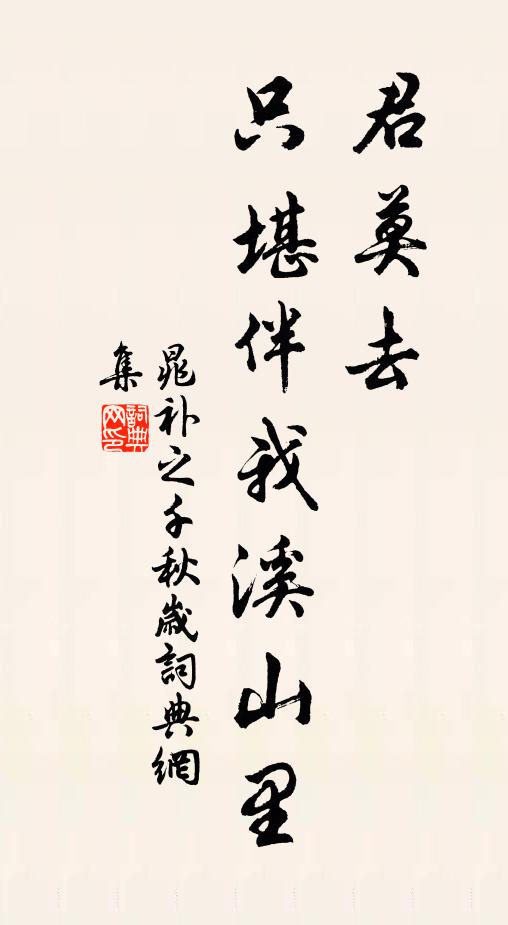 君莫去
只堪伴我溪山里
晁补之千秋歲詞典網
集
詞典
网印